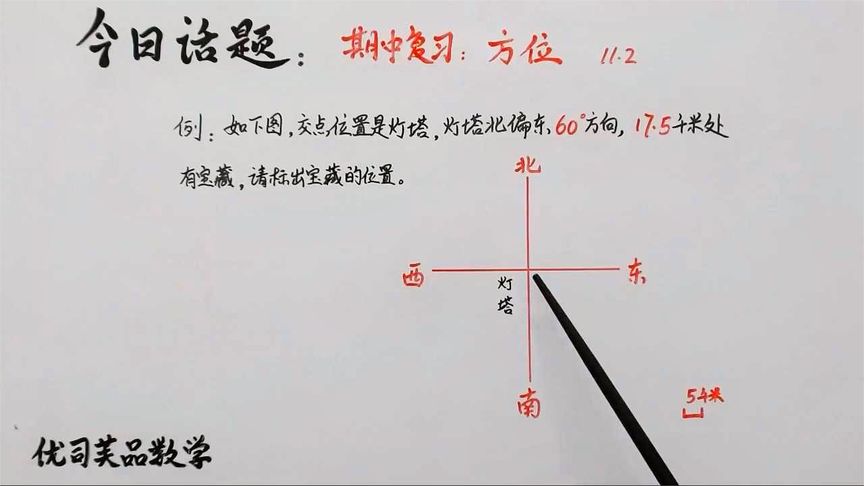 今日话题: 期中复习: 方位 11.2
例: 如下图,交点位置是灯塔,灯塔北偏东60°方向,17.5千米处
有宝藏,请标出宝藏的位置。
北
西
东
灯塔
南
5千米
优司芙品数学